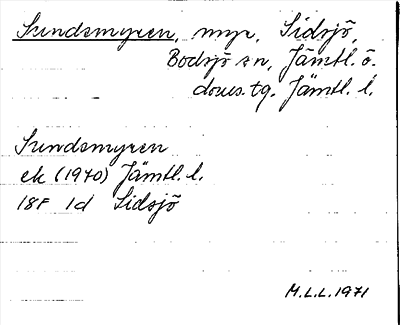 Sundsmyren, myr, Sidsjö,
Bodsjö sn, Jämtl. ö.
doms.tg. Jämtl. l.
Sundsmyren
ek (1970) Jämtl. l.
18F 1d Sidsjö
M.L.L. 1971